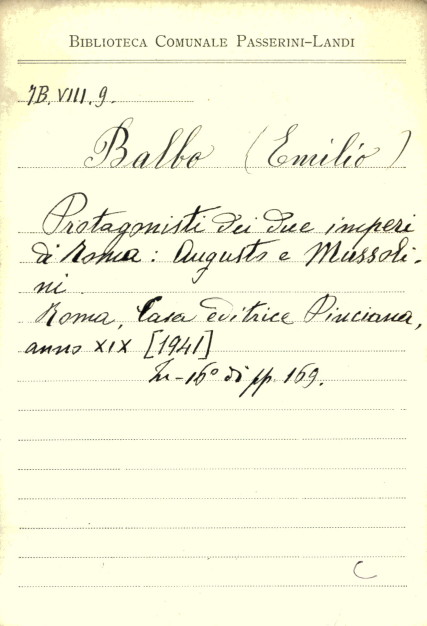 BIBLIOTECA COMUNALE PASSERINI-LANDI
7B. VIII. 9.
Balbo (Emilio)
Protagonisti dei due imperi
di Roma: Augusto e Mussoli-
ni.
Roma, Casa editrice Pinciana,
anno XIX [1941]
In-16º di pp. 169.
C